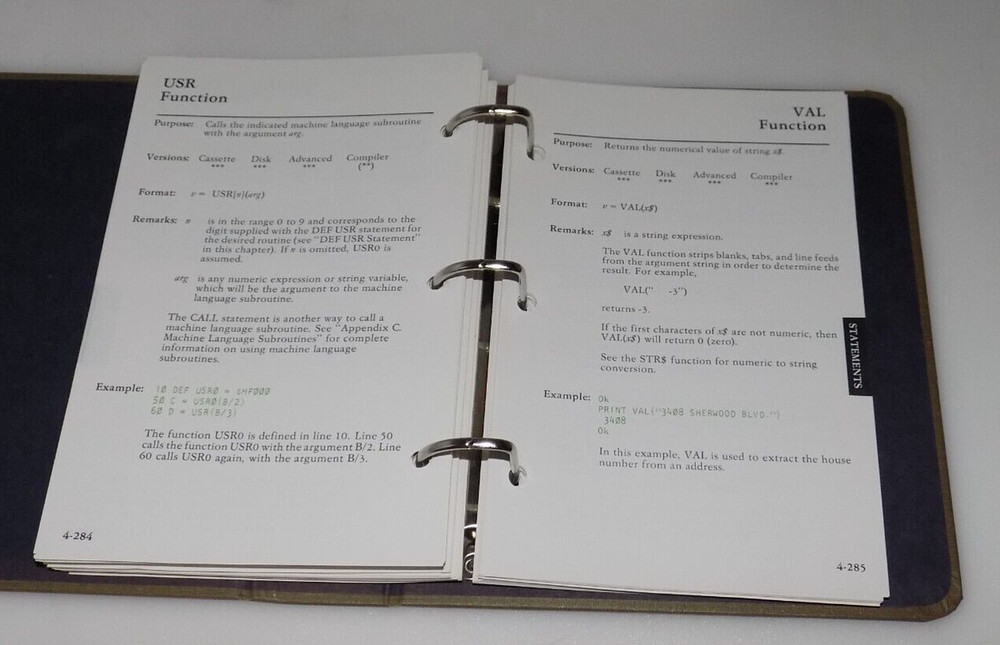 USR
Function
Purpose: Calls the indicated machine language subroutine
with the argument arg.
Versions: Cassette Disk Advanced Compiler
*** *** *** (**)
Format: v = USR[n](arg)
Remarks: n is in the range 0 to 9 and corresponds to the
digit supplied with the DEF USR statement for
the desired routine (see "DEF USR Statement"
in this chapter). If n is omitted, USR0 is
assumed.
arg is any numeric expression or string variable,
which will be the argument to the machine
language subroutine.
The CALL statement is another way to call a
machine language subroutine. See "Appendix C.
Machine Language Subroutines" for complete
information on using machine language
subroutines.
Example: 10 DEF USR0 = &HF000
50 C = USR0(B/2)
60 D = USR(B/3)
The function USR0 is defined in line 10. Line 50
calls the function USR0 with the argument B/2. Line
60 calls USR0 again, with the argument B/3.
4-284
VAL
Function
Purpose: Returns the numerical value of string x$.
Versions: Cassette Disk Advanced Compiler
*** *** *** ***
Format: v = VAL(x$)
Remarks: x$ is a string expression.
The VAL function strips blanks, tabs, and line feeds
from the argument string in order to determine the
result. For example,
VAL(" -3")
returns -3.
If the first characters of x$ are not numeric, then
VAL(x$) will return 0 (zero).
See the STR$ function for numeric to string
conversion.
Example: Ok
PRINT VAL("3408 SHERWOOD BLVD.")
3408
Ok
In this example, VAL is used to extract the house
number from an address.
4-285
STATEMENTS